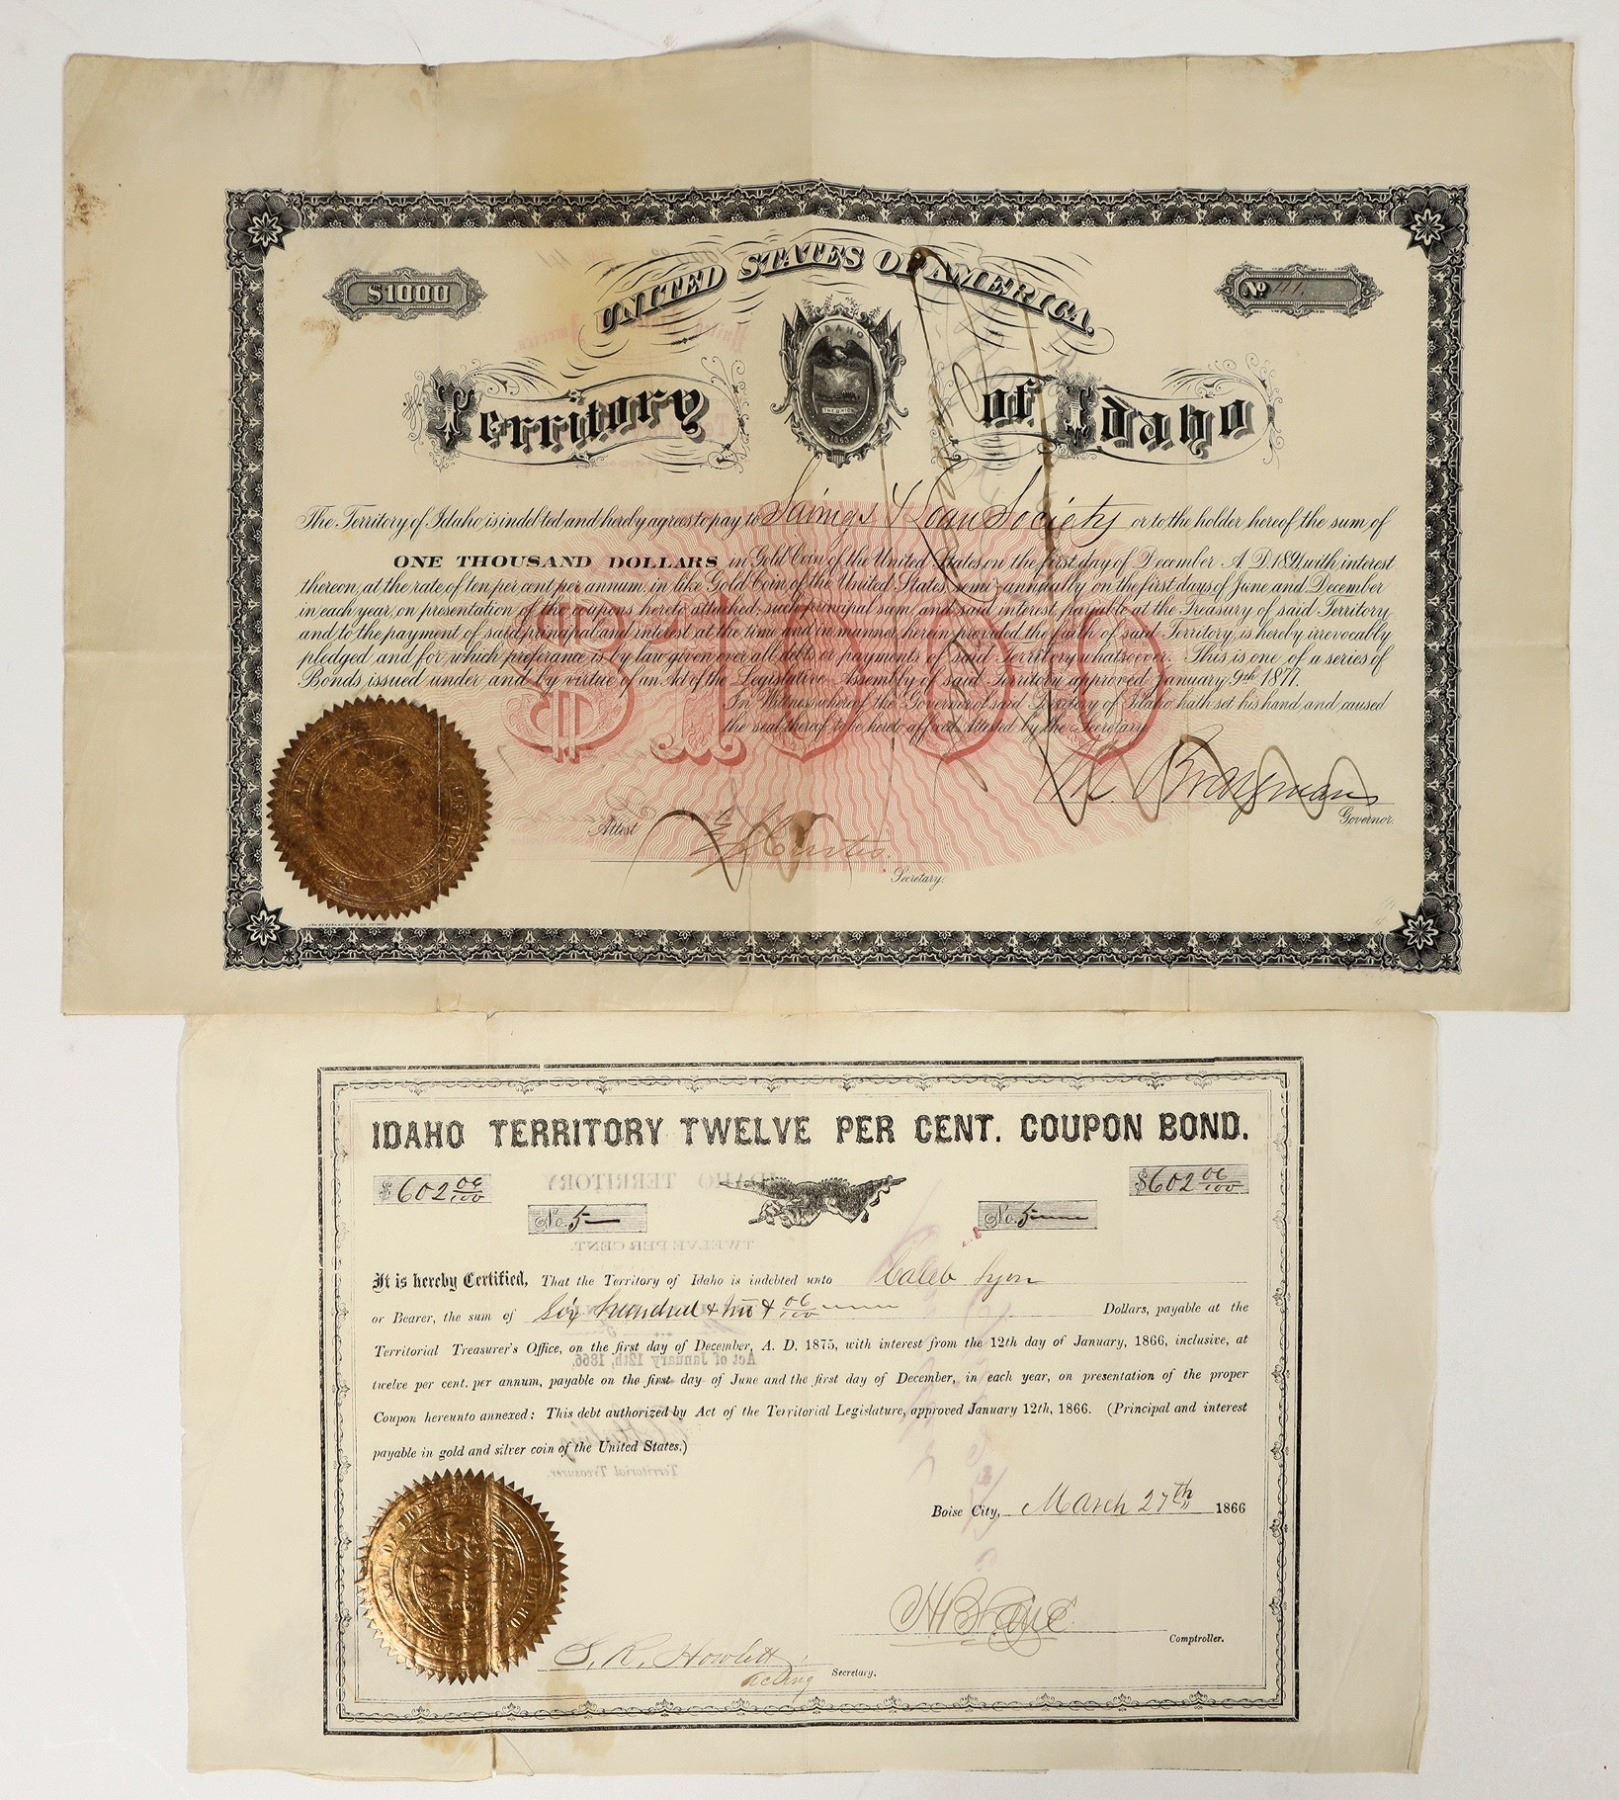 $1000
UNITED STATES OF AMERICA.
No 41.
IDAHO
THE UNION
1863
Territory of Idaho
The Territory of Idaho is indebted and hereby agrees to pay to Savings & Loan Society or to the holder hereof the sum of
ONE THOUSAND DOLLARS in Gold Coin of the United States on the first day of December A.D. 1891, with interest
thereon, at the rate of ten per cent per annum, in like Gold Coin of the United States, semi-annually on the first days of June and December
in each year, on presentation of the coupons hereto attached, such principal sum, and said interest, payable at the Treasury of said Territory,
and to the payment of said principal and interest at the time and in manner herein provided, the faith of said Territory, is hereby irrevocably
pledged and for which preferance is by law given over all debts or payments of said Territory whatsoever. This is one of a series of
Bonds issued under and by virtue of an Act of the Legislative Assembly of said Territory approved January 9th 1877.
In Witness whereof the Governor of said Territory of Idaho hath set his hand and caused
the seal thereof to be hereto affixed, Attested by the Secretary
$1000
M. Brayman
Governor.
Attest E J Curtis.
Secretary.
IDAHO TERRITORY TWELVE PER CENT. COUPON BOND.
$602 06/100
$602 06/100
No. 5
No. 5
It is hereby Certified, That the Territory of Idaho is indebted unto Caleb Lyon
or Bearer, the sum of Six hundred & two & 06/100 Dollars, payable at the
Territorial Treasurer's Office, on the first day of December, A. D. 1875, with interest from the 12th day of January, 1866, inclusive, at
twelve per cent. per annum, payable on the first day of June and the first day of December, in each year, on presentation of the proper
Coupon hereunto annexed: This debt authorized by Act of the Territorial Legislature, approved January 12th, 1866. (Principal and interest
payable in gold and silver coin of the United States.)
Boise City, March 27th 1866
H B Lane
Comptroller.
S. R. Howlett,
acting Secretary.